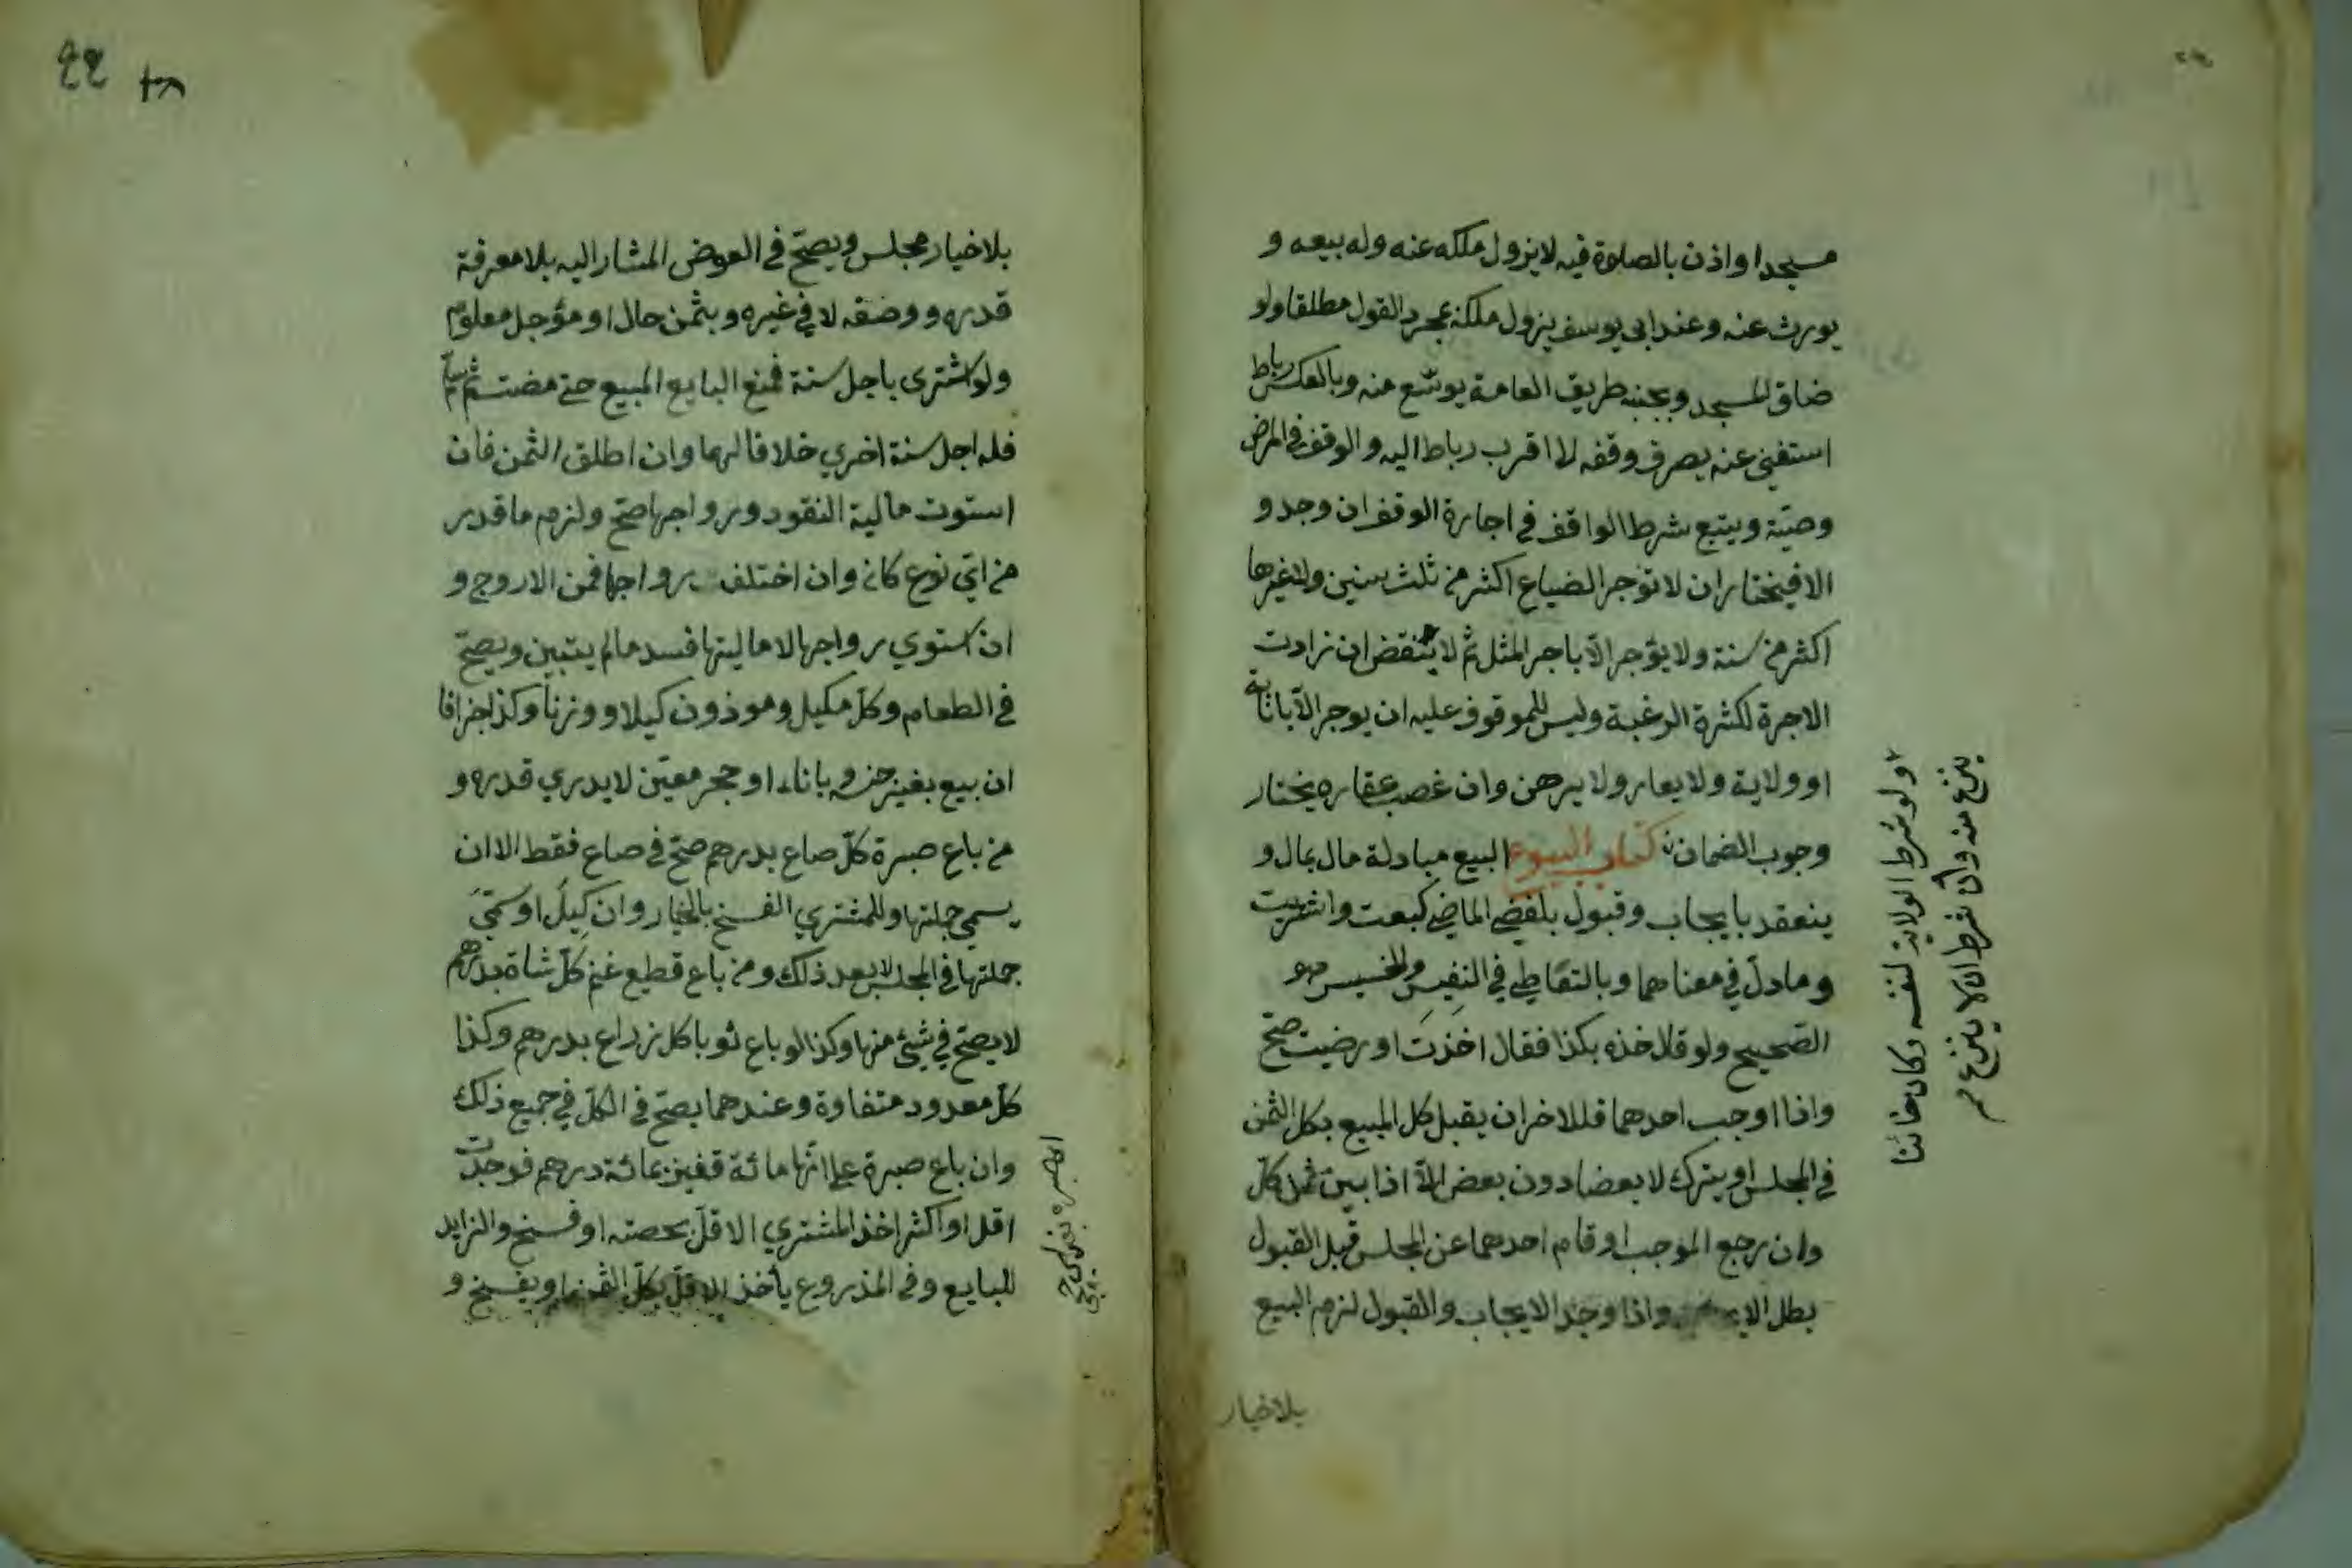 مسجدا واذن بالصلوة فيه لا يزول ملكه عنه وله بيعه و
يورث عنه وعند ابى يوسف يزول ملكه بمجرد القول مطلقا ولو
ضاق المسجد وبجنبه طريق العامة يوسّع منه وبالعكس رباط
استغنى عنه يصرف وقفه لا اقرب رباط اليه والوقف في المرض
وصيّة ويتبع شرط الواقف في اجارة الوقف ان وجد و
الا فيختار ان لا تؤجر الضياع اكثر من ثلث سنين ولا غيرها
اكثر من سنة ولا يؤجر الّا باجر المثل ثمّ لا ينقض ان زادت
الاجرة لكثرة الرغبة وليس للموقوف عليه ان يوجر الّا بانابة
او ولاية ولا يعار ولا يرهن وان غصب عقاره يختار
وجوب الضمان كتاب البيوع البيع مبادلة مال بمال و
ينعقد بايجاب وقبول بلفظي الماضي كبعت واشتريت
وما دلّ في معناهما وبالتعاطي في النفيس والخسيس هو
الصّحيح ولو قال خذه بكذا فقال اخذت او رضيت صحّ
واذا اوجب احدهما فللاخر ان يقبل كل المبيع بكل الثمن
في المجلس او يترك لا بعضا دون بعض الّا اذا بيّن ثمن كلّ
وان رجع الموجب او قام احدهما عن المجلس قبل القبول
بطل واذا وجد الايجاب والقبول لزم البيع
بلا خيار
ولو شرط الولاية لنفسه وكان خائنا
ينزع منه وان شرط ان لا ينزع م
بلا خيار مجلس ويصحّ في العوض المشار اليه بلا معرفة
قدره ووصفه لا في غيره وبثمن حال او مؤجل معلوم
ولو اشترى باجل سنة فمنع البايع المبيع حتى مضت ثم سلّم
فله اجل سنة اخري خلافا لهما وان اطلق الثمن فان
استوت مالية النقود ورواجها صحّ ولزم ما قدر
من ايّ نوع كان وان اختلف رواجها فمن الاروج و
ان استوي رواجها لا ماليتها فسد ما لم يتبين ويصحّ
في الطعام وكلّ مكيل وموذون كيلا ووزنا وكذا جزافا
ان بيع بغير جنسه وباناء او حجر معيّن لا يدري قدره و
من باع صبرة كلّ صاع بدرهم صحّ في صاع فقط الا ان
يسمي جملتها وللمشتري الفسخ بالخيار وان كيل او سمّي
جملتها في المجلس لا بعد ذلك ومن باع قطيع غنم كلّ شاة بدرهم
لا يصحّ في شيئ منها وكذا لو باع ثوبا كل زراع بدرهم وكذا
كلّ معدود متفاوة وعندهما يصحّ في الكلّ في جميع ذلك
وان باع صبرة على انّها مائة قفيز بمائة درهم فوجدت
اقل او اكثر اخذ المشتري الاقلّ بحصته او فسخ والزايد
للبايع وفي المذروع يأخذ الاقلّ بكلّ الثمن او يفسخ و